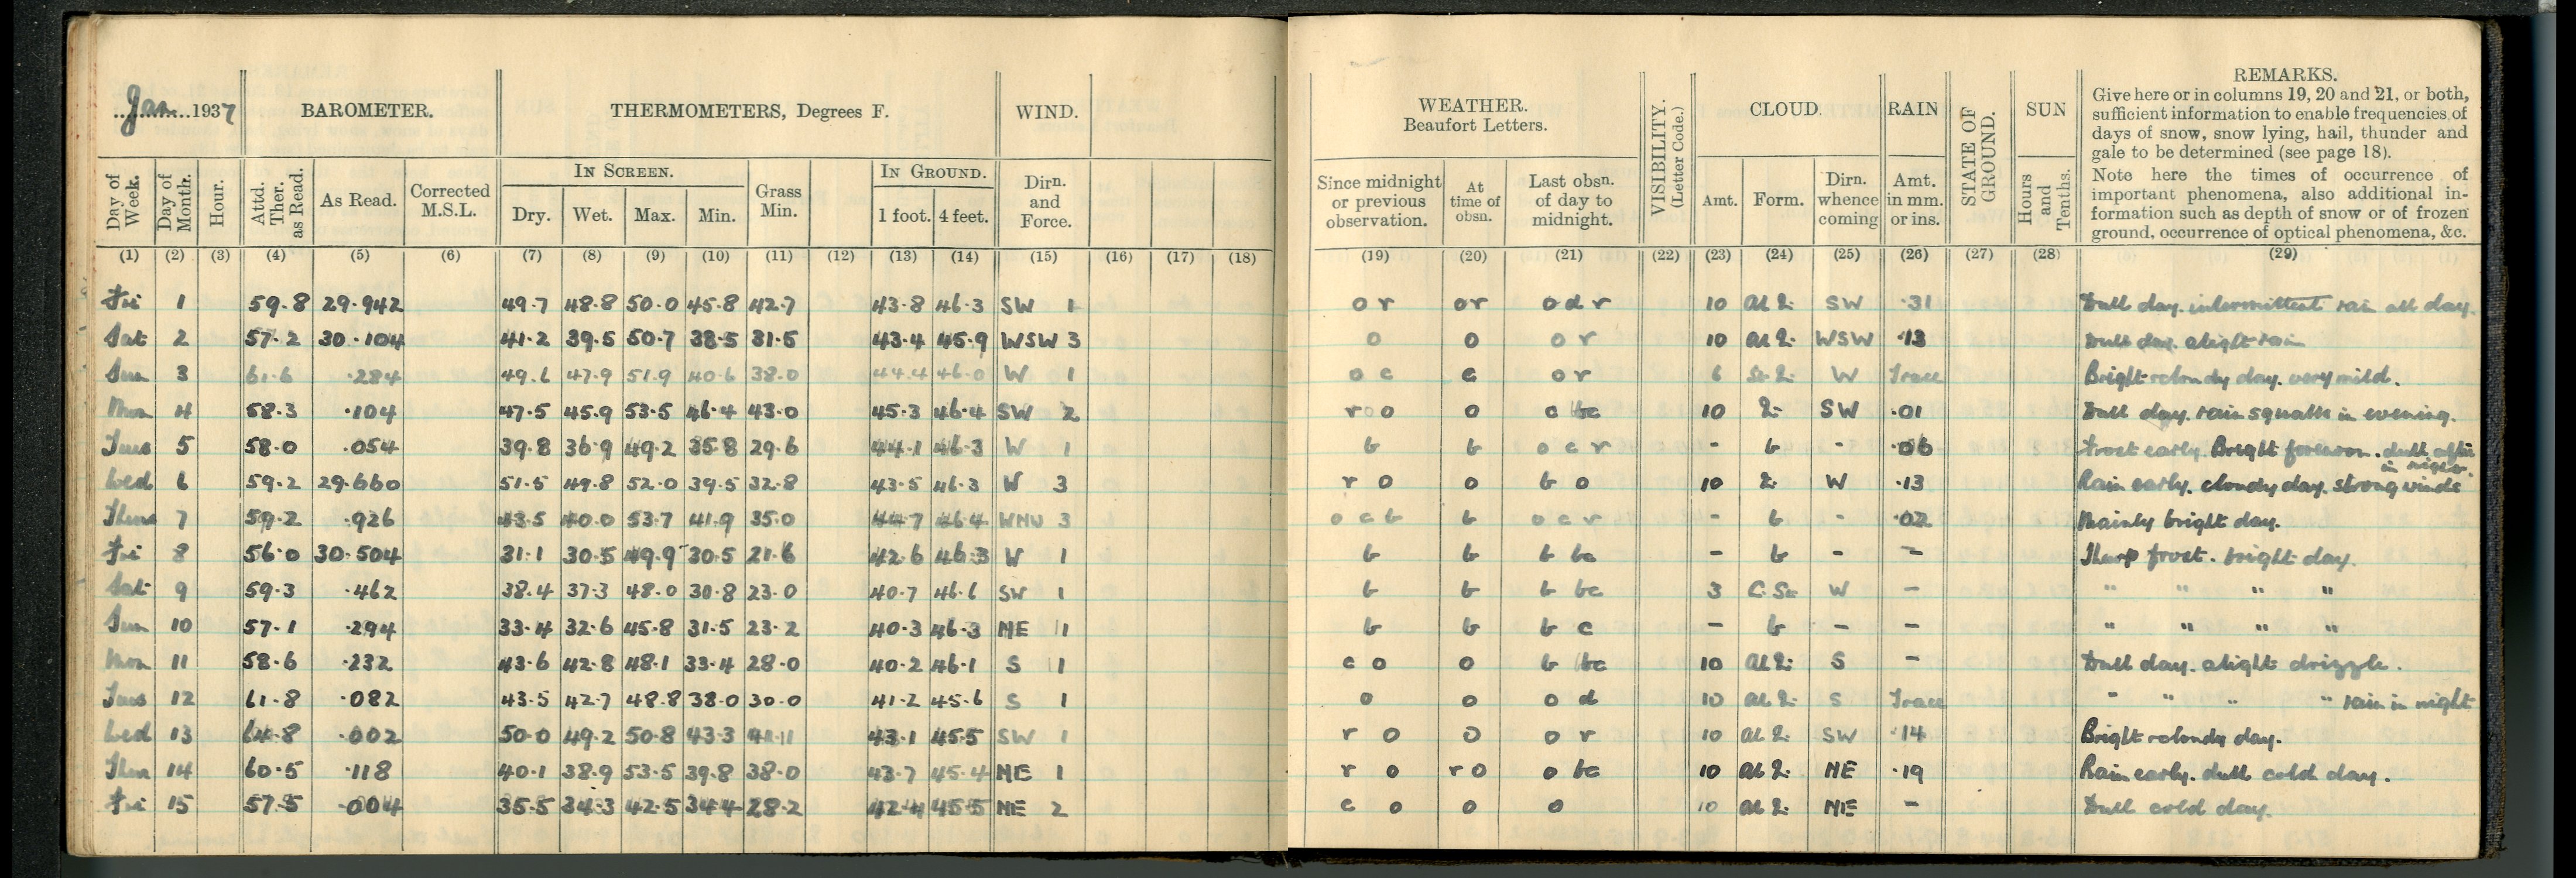 Jan 1937 BAROMETER. THERMOMETERS, Degrees F. WIND. WEATHER. Beaufort Letters. VISIBILITY. (Letter Code.) CLOUD RAIN STATE OF GROUND. SUN REMARKS.
Give here or in columns 19, 20 and 21, or both,
sufficient information to enable frequencies of
days of snow, snow lying, hail, thunder and
gale to be determined (see page 18).
Note here the times of occurrence of
important phenomena, also additional in-
formation such as depth of snow or of frozen
ground, occurrence of optical phenomena, &c.
Day of Week. Day of Month. Hour. Attd. Ther. as Read. As Read. Corrected M.S.L. IN SCREEN. Dry. Wet. Max. Min. Grass Min. IN GROUND. 1 foot. 4 feet. Dirn. and Force. Since midnight or previous observation. At time of obsn. Last obsn. of day to midnight. Amt. Form. Dirn. whence coming Amt. in mm. or ins. Hours and Tenths.
(1) (2) (3) (4) (5) (6) (7) (8) (9) (10) (11) (12) (13) (14) (15) (16) (17) (18) (19) (20) (21) (22) (23) (24) (25) (26) (27) (28) (29)
Fri 1 59.8 29.942 49.7 48.8 50.0 45.8 42.7 43.8 46.3 SW 1 o r or o d r 10 SW .31 Dull day. intermittent rain all day.
Sat 2 57.2 30.104 41.2 39.5 50.7 38.5 31.5 43.4 45.9 WSW 3 o o o r 10 WSW .13 Dull day. slight rain
Sun 3 61.6 .284 49.6 47.9 51.9 40.6 38.0 44.4 46.0 W 1 o c c o r 6 W Trace Bright & cloudy day. very mild.
Mon 4 58.3 .104 47.5 45.9 53.5 46.4 43.0 45.3 46.4 SW 2 r o o o c bc 10 SW .01 Dull day. rain squalls in evening.
Tues 5 58.0 .054 39.8 36.9 49.2 35.8 29.6 44.1 46.3 W 1 b b o c r - b - .06 Frost early. Bright forenoon. dull after
Wed 6 59.2 29.660 51.5 49.8 52.0 39.5 32.8 43.5 46.3 W 3 r o o b o 10 W .13 Rain early. cloudy day. strong winds in night.
Thurs 7 59.2 .926 43.5 40.0 53.7 41.9 35.0 44.7 46.4 WNW 3 o c b b o c r - b - .02 Mainly bright day.
Fri 8 56.0 30.504 31.1 30.5 49.9 30.5 21.6 42.6 46.3 W 1 b b b bc - b - - Sharp frost. bright day.
Sat 9 59.3 .462 38.4 37.3 48.0 30.8 23.0 40.7 46.6 SW 1 b b b bc 3 W - " " " "
Sun 10 57.1 .294 33.4 32.6 45.8 31.5 23.2 40.3 46.3 NE 1 b b b c - b - - " " " "
Mon 11 58.6 .232 43.6 42.8 48.1 33.4 28.0 40.2 46.1 S 1 c o o b bc 10 S - Dull day. slight drizzle.
Tues 12 61.8 .082 43.5 42.7 48.8 38.0 30.0 41.2 45.6 S 1 o o o d 10 S Trace " " " " rain in night
Wed 13 64.8 .002 50.0 49.2 50.8 43.3 41.1 43.1 45.5 SW 1 r o o o r 10 SW .14 Bright & cloudy day.
Thur 14 60.5 .118 40.1 38.9 53.5 39.8 38.0 43.7 45.4 NE 1 r o r o o bc 10 NE .19 Rain early. dull cold day.
Fri 15 57.5 .004 35.5 34.3 42.5 34.4 28.2 42.4 45.5 NE 2 c o o o 10 NE - Dull cold day.